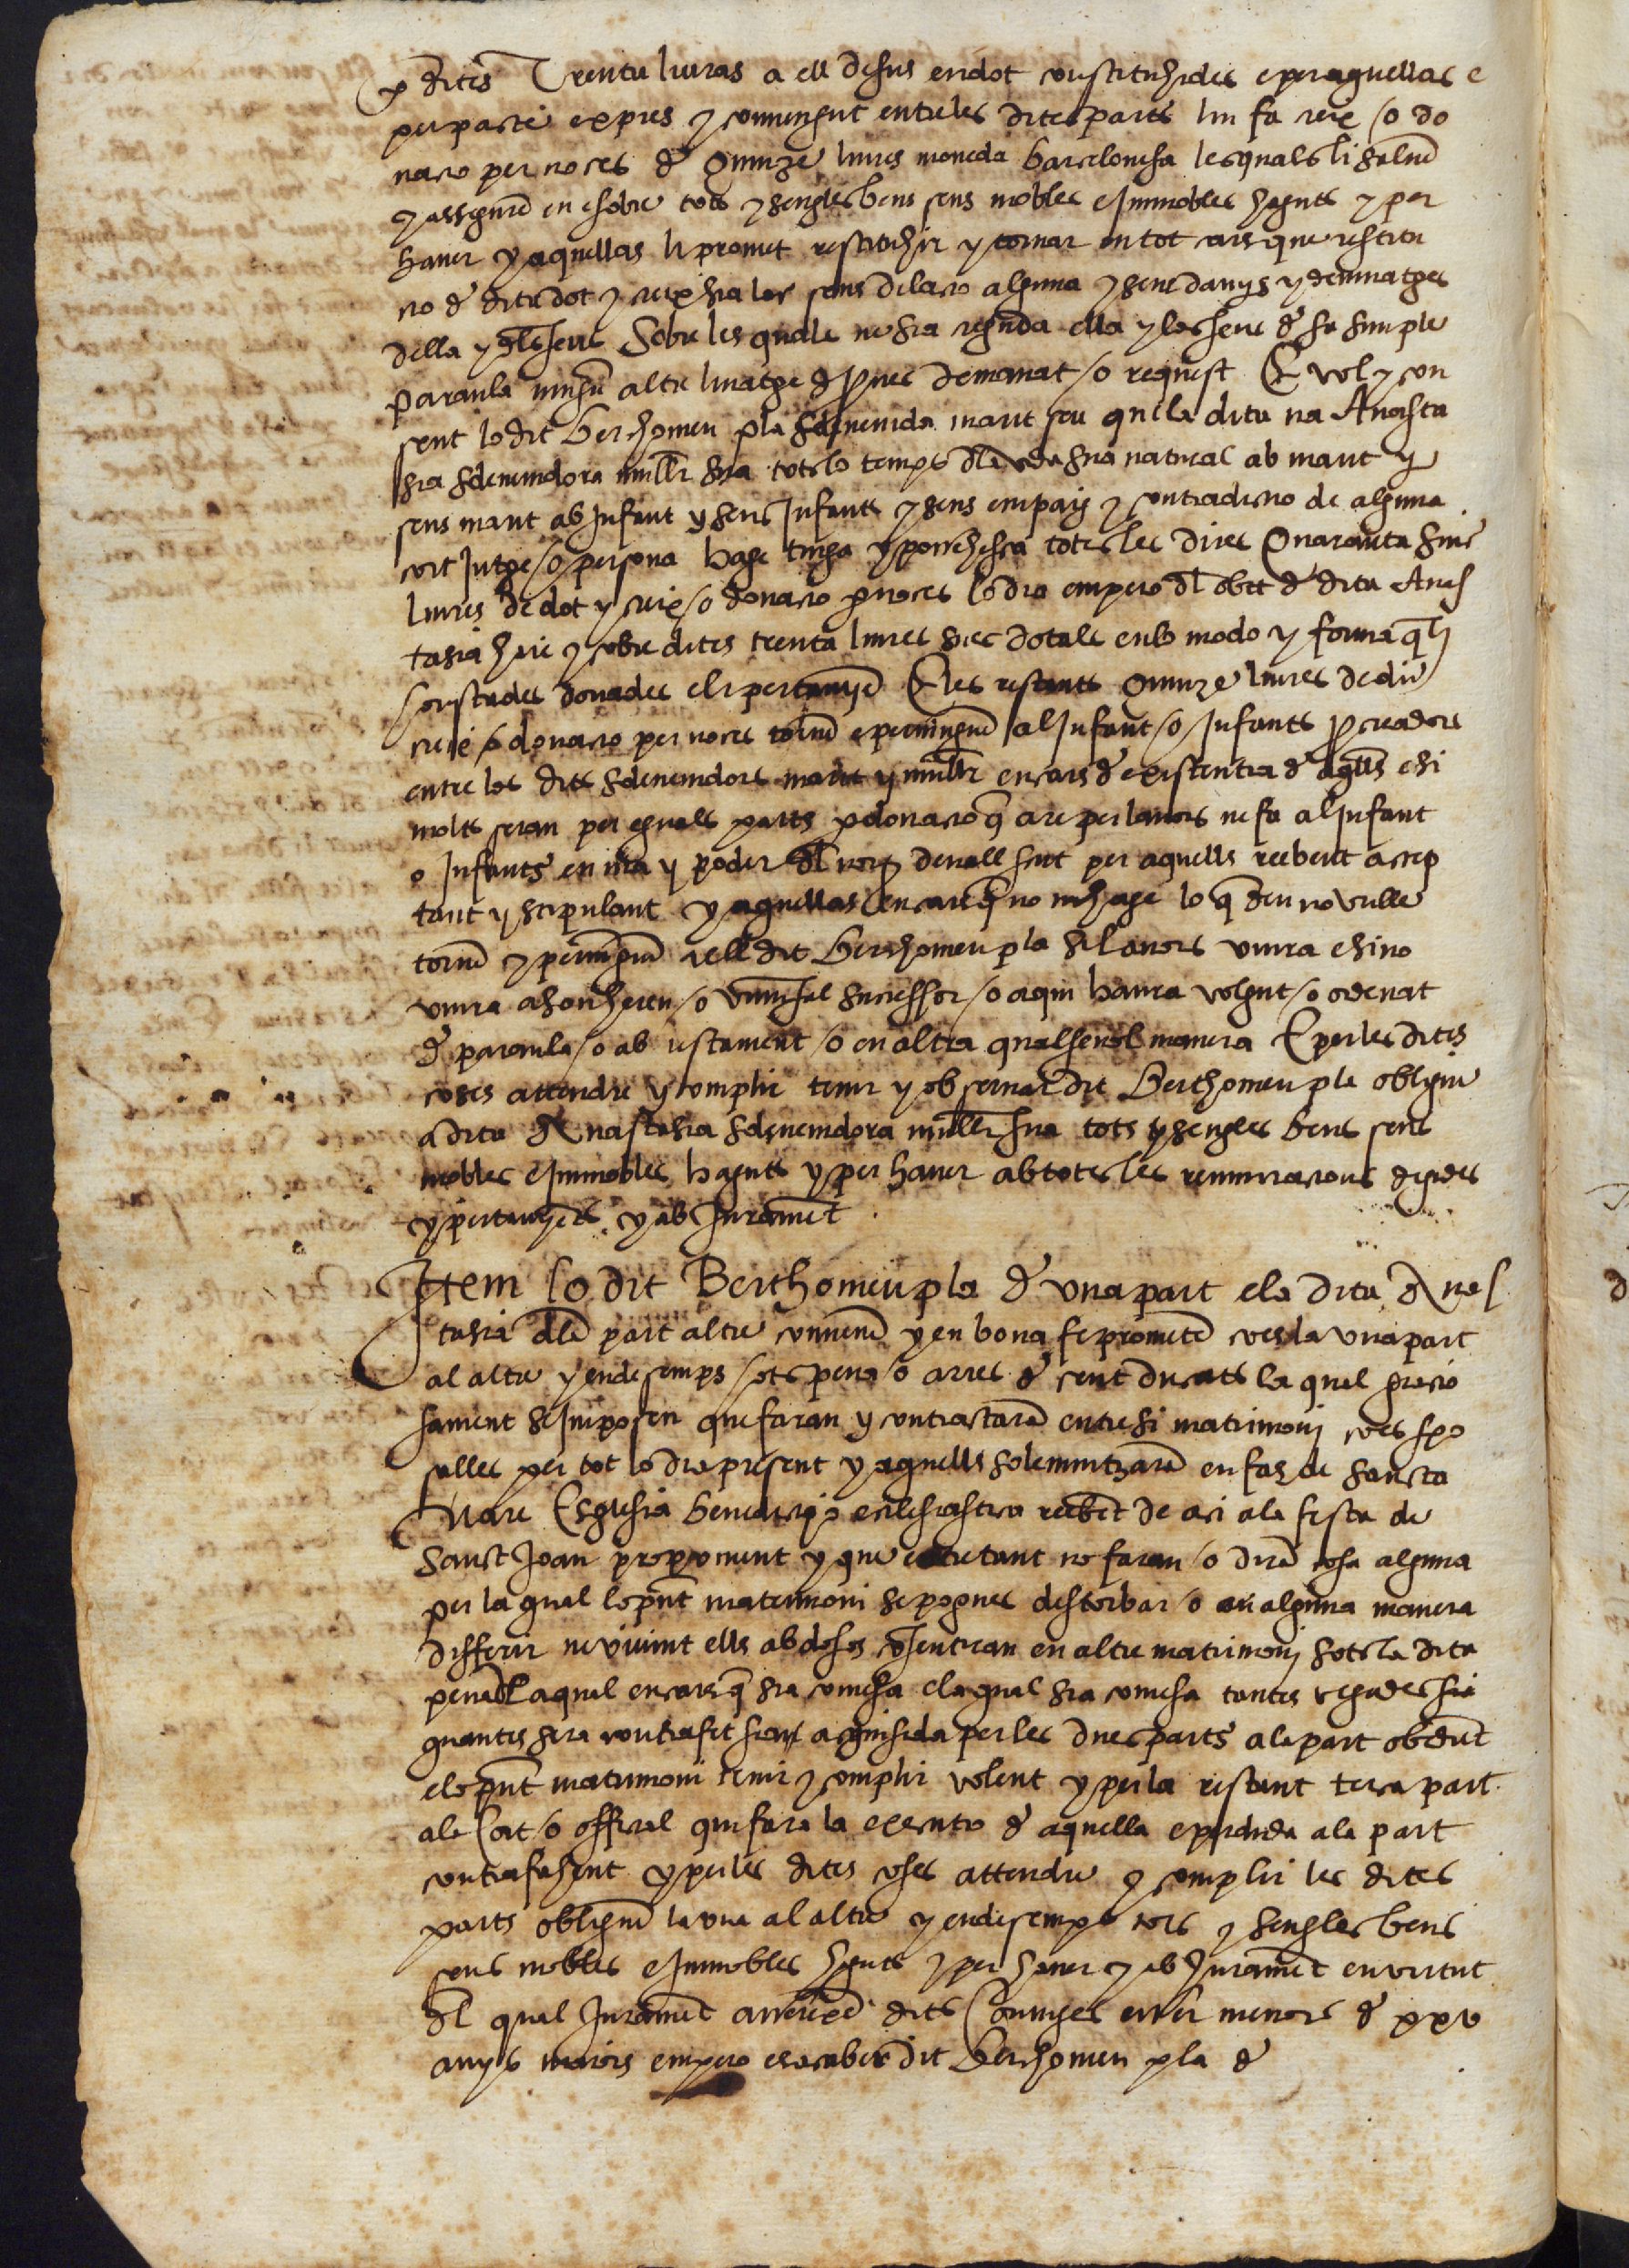 p dites Trenta liuras a ell desus en dot constituhides e per aquellas e
per pacte expres y conuengut entre les dites parts lin fa creix /o do
nacio per noces de Quinze liures moneda barcelonesa les quals li salue
y assegure en e sobre tots y sengles bens seus mobles e Immobles haguts y per
hauer y aquellas li promet restituhir y tornar en tot cars que restitu
cio de dita dot y creix hia loc sens dilacio alguna y sens danys y demnatges
della y dls seus Sobre les quals ne sia reguda ella y los seus de sa simple
paraula ningu altre linatge de proues demanat /o request E vol y con
sent lo dit berthomeu pla sdeuenida marit seu que la dita na Anasta
sia sdeuenidora muller sua tot lo temps dla vida sua natural ab marit y
sens marit ab Infant y sens Infants y sens empaig y contradictio de alguna
cort Jutge /o persona hage tinga y possehesca totes les dites Quaranta sinc
liures de dot y creix /o donacio p noces lo dia empero dl obit de dita Anas
tasia hage y cobre dites trenta liures sues dotals en lo modo y forma q li
son stades donades e li pertanyen E les restants Quinze liures de dit
creix /o donacio per noces tornen e peruinguen al Infant /o Infants procreadors
entre los dits sdeuenidors marit y muller en cars de existentia de aqlls e si
molts seran per eguals parts p donacio q are per lauors ne fa al Infant
o Infants en ma y poder dl not deuall scrit per aquells reebent accep
tant y stipulant y aquellas en cars q no ni hage lo q deu no vulle
tornen y peruinguen a ell dit berthomeu pla si lauors viura e si no
viura a son hereu /o vniuersal successor /o a qui haura volgut /o ordenat
de paraula /o ab testament /o en altra qualseuol manera E per les dites
coses attendre y complir tenir y obseruar dit Berthomeu pla obligue
a dita Anastasia sdeuenidora muller sua tots y sengles bens seus
mobles e Immobles haguts y per hauer ab totes les renunciacions degudes
y pertanyents y ab Jurament
Item lo dit Berthomeu pla de vna part e la dita Anas
tasia dla part altre conuenen y en bona fe prometen ço es la vna part
al altre y endesemps sots pena /o arres de cent ducats la qual gracio
sament se Imposen que faran y contractaran entre si matrimoni ço es spo
salles per tot lo dia present y aquells solemnitzaran en fas de sancta
Mare Esglesia benedictio ecclesiastica reebent de aci a la festa de
Sanct Joan propuinent y que entretant no faran /o diran cosa alguna
per la qual lo pnt matrimoni se pogues destorbar /o en alguna manera
differir ne viuint ells abdosos cosentiran en altre matrimoni sots la dita
pena dla qual en cars q sia comesa e la qual sia comesa tantes vegades sie
quantes sera contrafet sien aquisida per les dues parts a la part obedient
e lo pnt matrimoni tenir y complir volent y per la restant terca part
a la Cort /o official qui fara la executio de aquella e perduda a la part
contrafahent y per les dites coses attendre y complir les dites
parts obliguen la vna al altre y endesemps tots y sengles bens
seus mobles e Immobles haguts y per hauer y ab Jurament en virtut
dl qual Jurament dits Coniuges esser menors de xxv
anys maiors empero es a saber dit berthomeu pla de